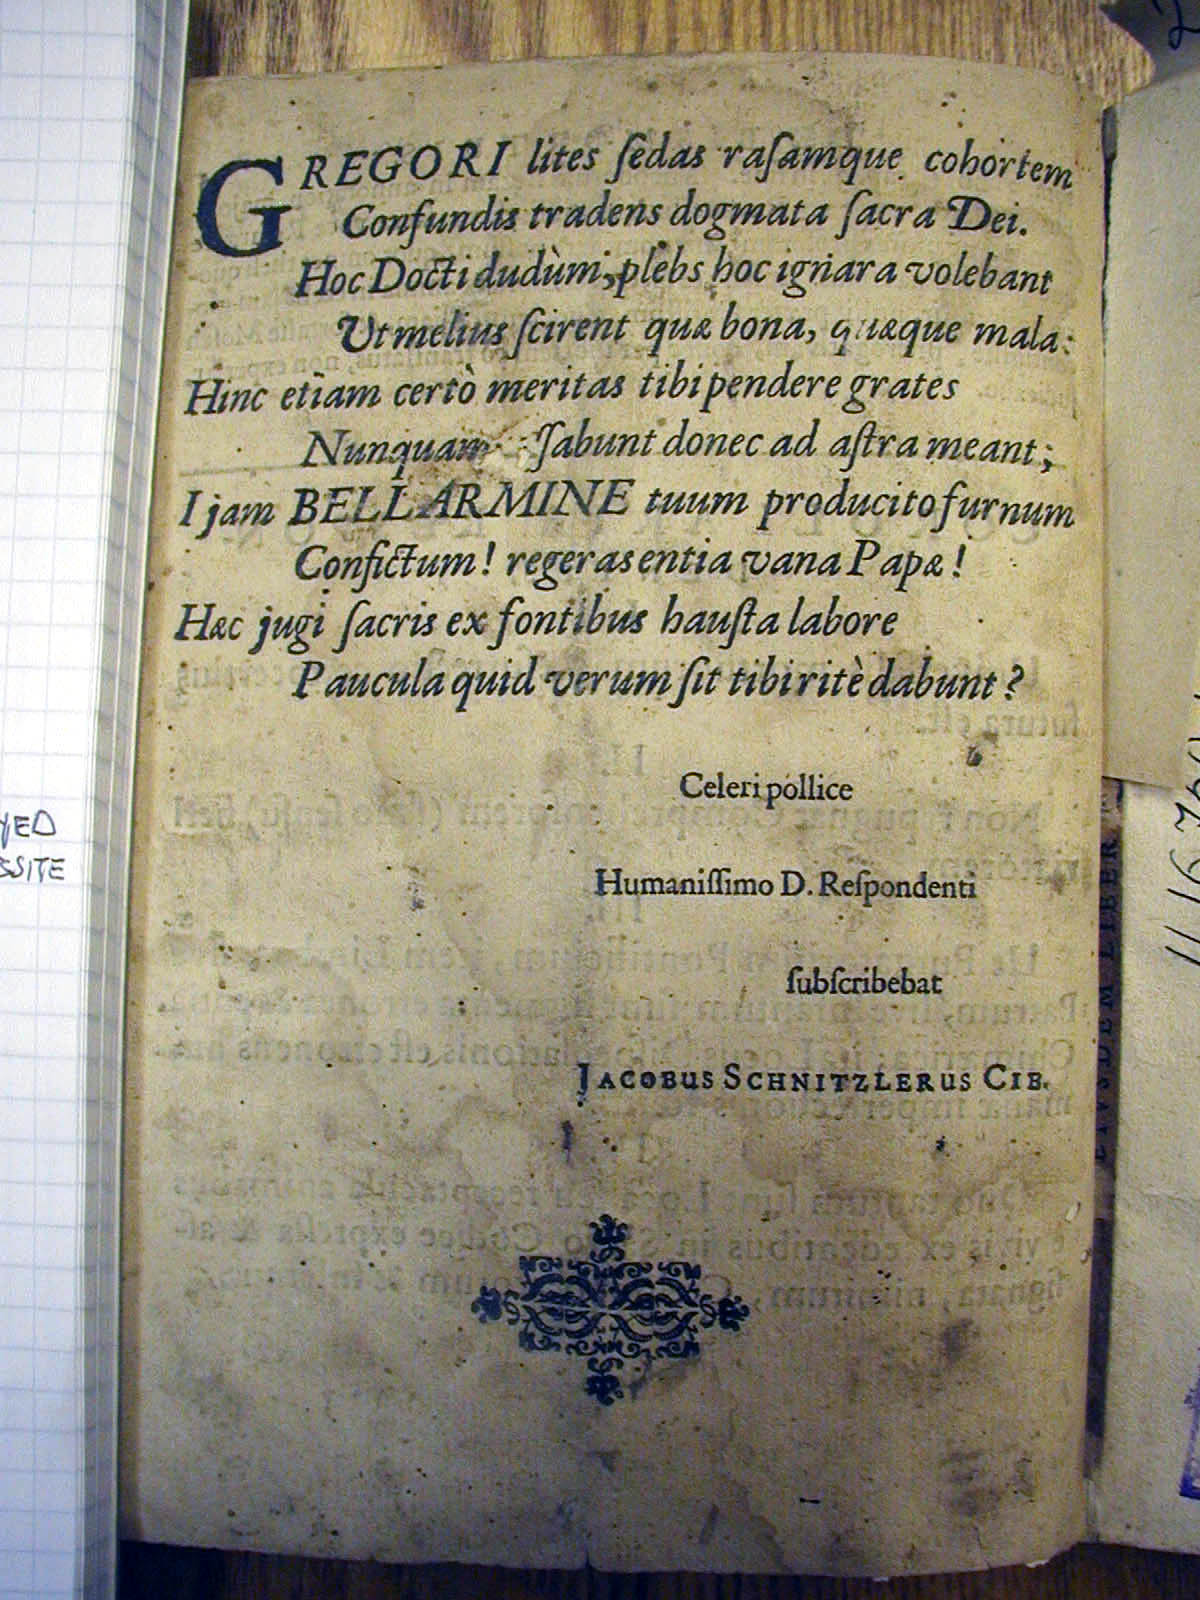 GREGORI lites ſedas raſamque cohortem
Confundis tradens dogmata ſacra Dei.
Hoc Docti dudùm; plebs hoc ignara volebant
Ut melius ſcirent quæ bona, quæque mala:
Hinc etiam certò meritas tibi pendere grates
Nunquam ſabunt donec ad aſtra meant;
I jam BELLARMINE tuum producito furnum
Confictum! regeras entia vana Papæ!
Hæc jugi ſacris ex fontibus hauſta labore
Paucula quid verum ſit tibi ritè dabunt?
Celeri pollice
Humaniſſimo D. Reſpondenti
ſubſcribebat
JACOBUS SCHNITZLERUS CIB.
SSITE